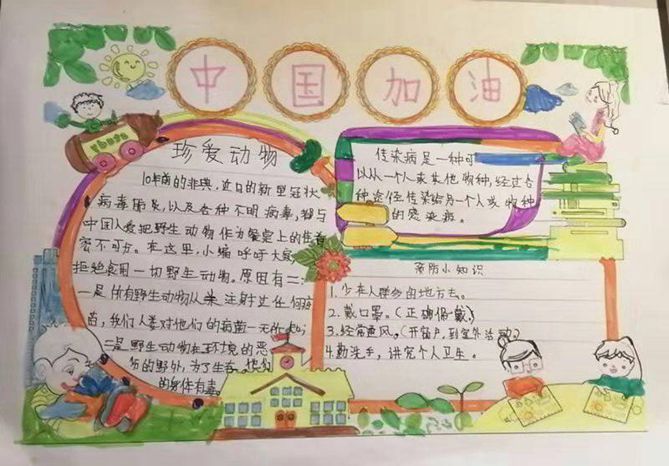 中国加油
珍爱动物
10年前的非典,近日的新型冠状
病毒肺炎,以及各种不明病毒,都与
中国人爱把野生动物作为餐桌上的佳肴
密不可分。在这里,小编呼吁大家
拒绝食用一切野生动物。原因有二:
一是所有野生动物从来注射过任何疫
苗,我们人类对他们的病菌一无所知
二是野生动物在环境的恶
劣的野外,为了生存,他们
的身体有毒。
传染病是一种可
以从一个人或其他物种,经过各
种途径传染给另一个人或物种
的感染病。
预防小知识
1.少在人群多的地方去。
2.戴口罩。(正确佩戴)
3.经常通风。(开窗户,到室外活动)
4.勤洗手,讲究个人卫生。